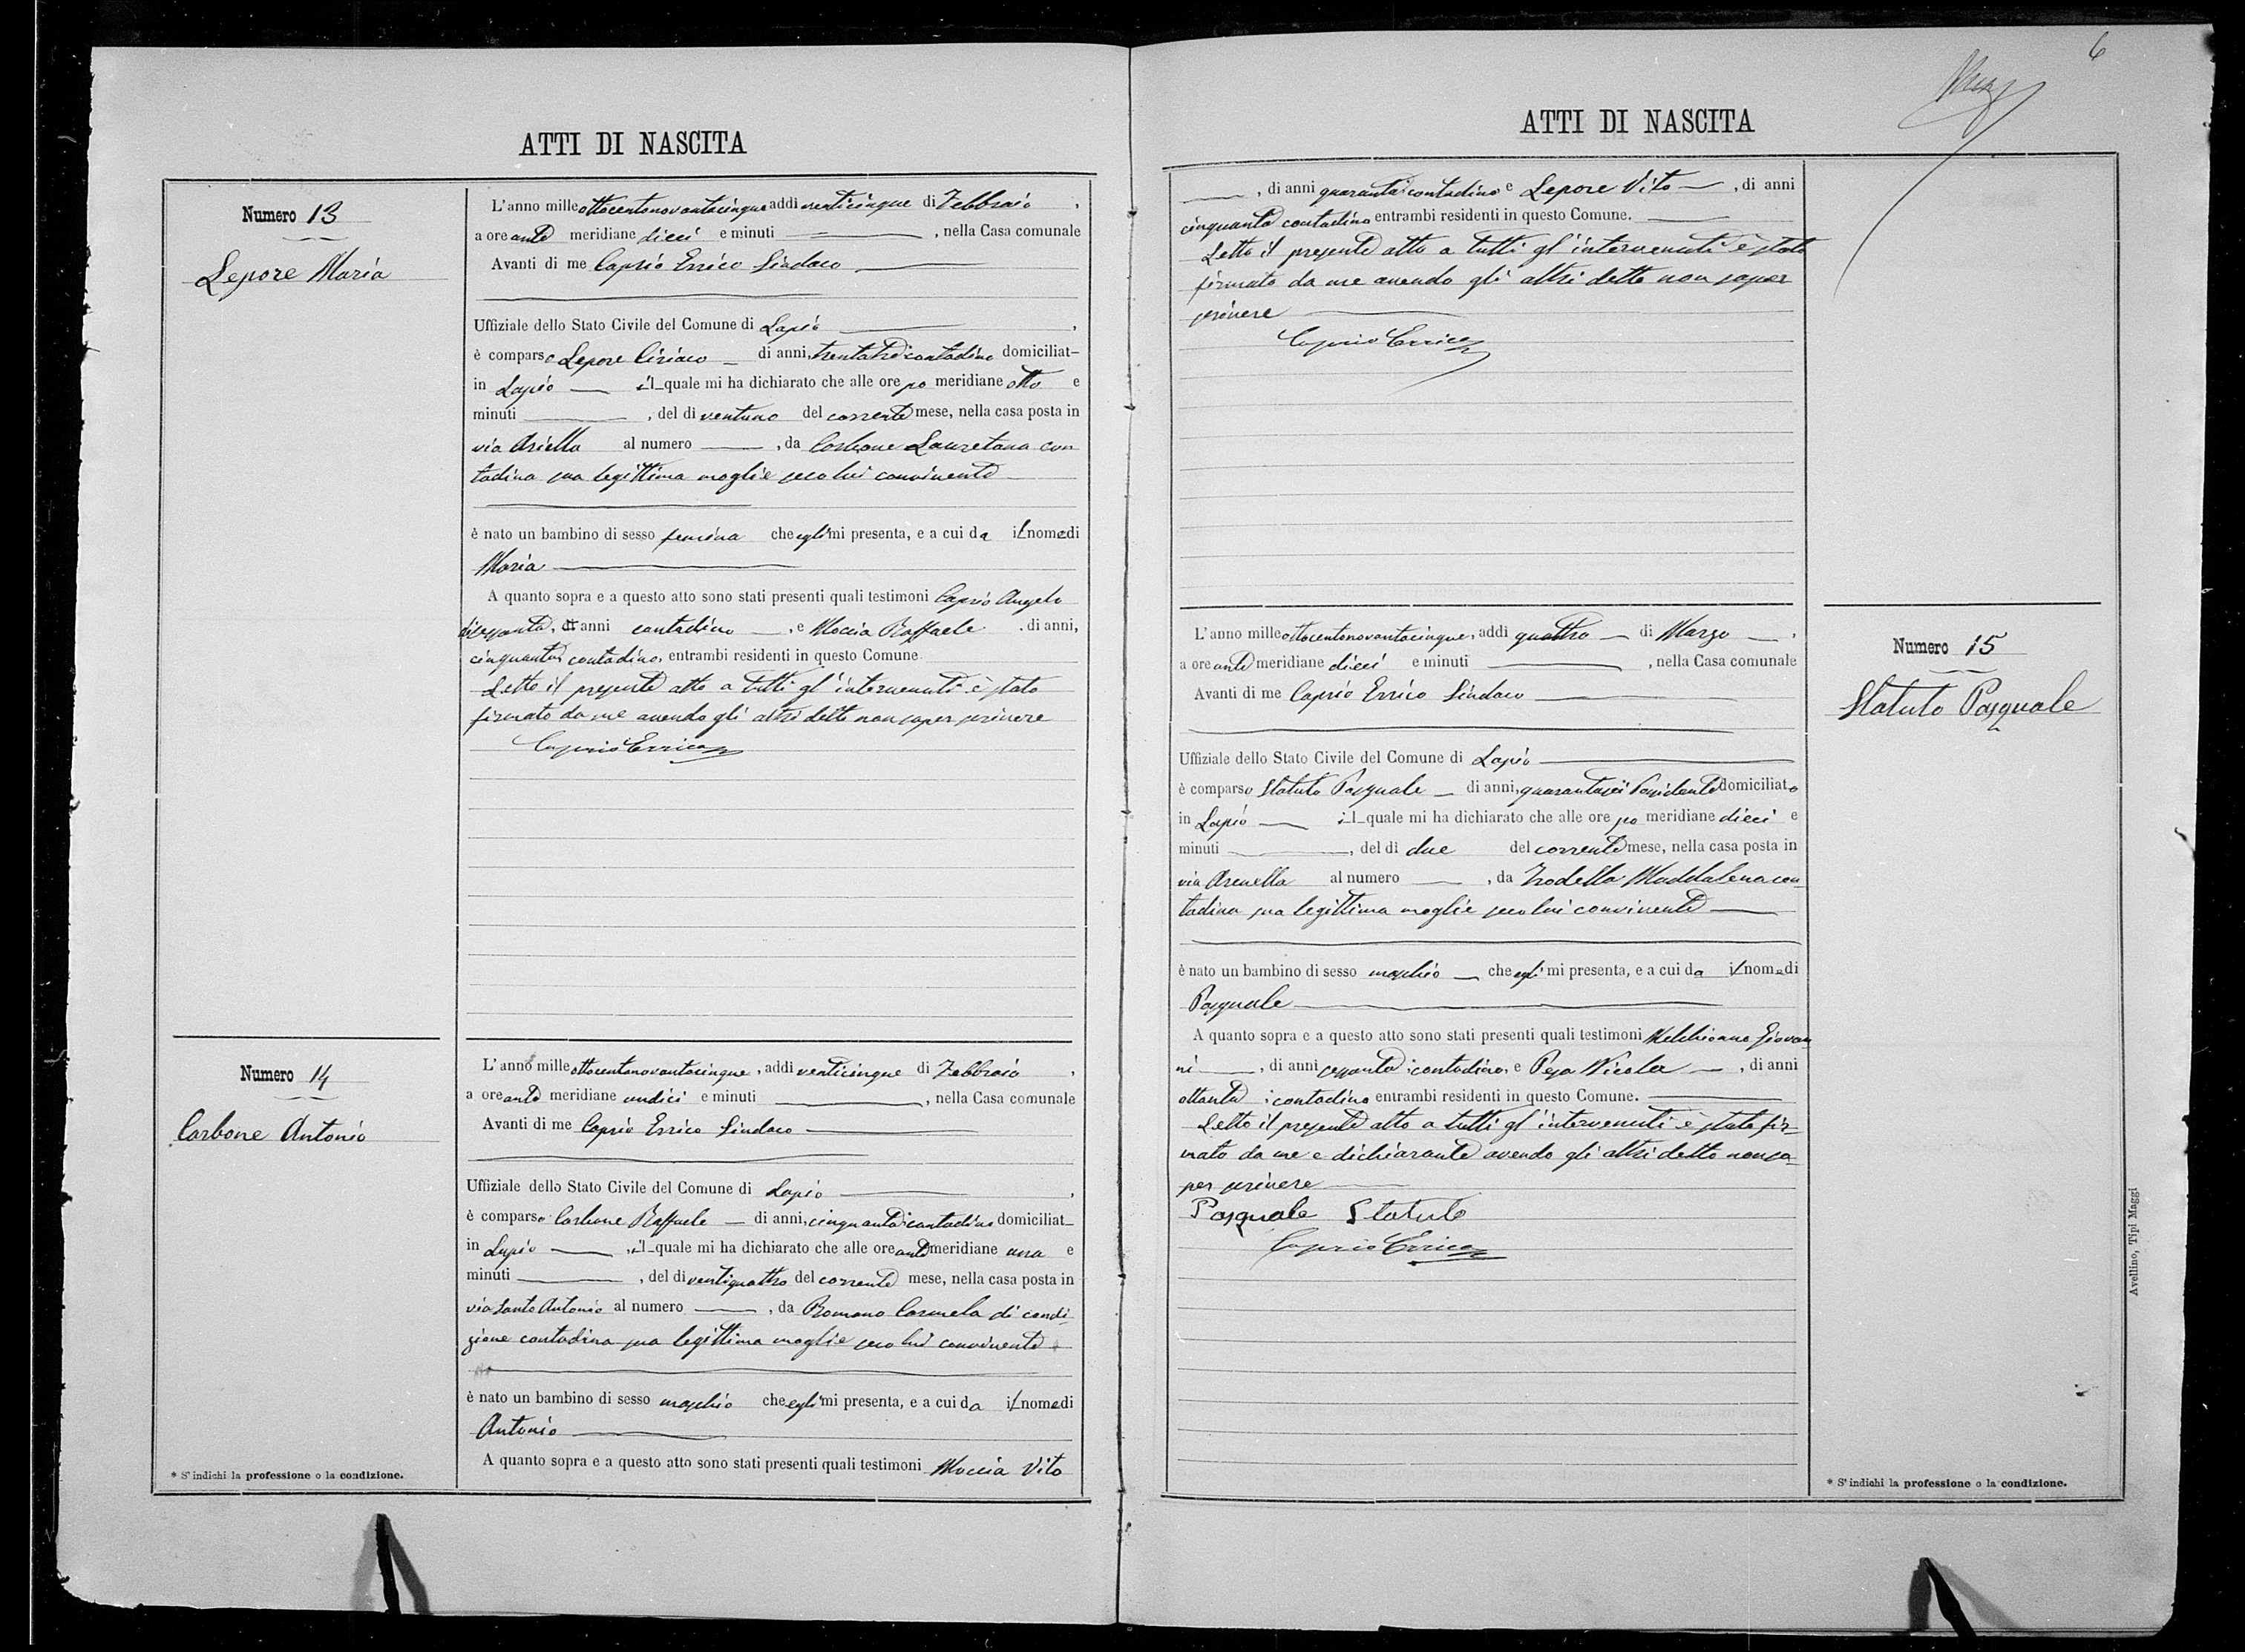 ATTI DI NASCITA
Numero 13
Lepore Maria
L'anno mille ottocentonovantacinque addì venticinque di Febbraio,
a ore ante meridiane dieci e minuti =, nella Casa comunale
Avanti di me Caprio Errico Sindaco
Uffiziale dello Stato Civile del Comune di Lapio,
è comparso Lepore Ciriaco di anni, trentatre contadino domiciliat
in Lapio il quale mi ha dichiarato che alle ore po meridiane otto e
minuti, del dì ventuno del corrente mese, nella casa posta in
via Ariella al numero, da Carbone Lauretana con
tadina sua legittima moglie seco lui convivente
è nato un bambino di sesso femina che egli mi presenta, e a cui da il nome di
Maria
A quanto sopra e a questo atto sono stati presenti quali testimoni Caprio Angelo
di anni contadino, e Moccia Raffaele di anni,
cinquanta contadino, entrambi residenti in questo Comune.
Letto il presente atto a tutti gl'intervenuti è stato
firmato da me avendo gli altri detto non saper scrivere
Caprio Errico
Numero 14
Carbone Antonio
L'anno mille ottocentonovantacinque, addì venticinque di Febbraio,
a ore ante meridiane undici e minuti, nella Casa comunale
Avanti di me Caprio Errico Sindaco
Uffiziale dello Stato Civile del Comune di Lapio,
è comparso Carbone Raffaele di anni, cinquanta contadino domiciliat
in Lapio, il quale mi ha dichiarato che alle ore ante meridiane una e
minuti, del dì ventiquattro del corrente mese, nella casa posta in
via Santo Antonio al numero, da Romano Carmela di condi-
zione contadina sua legittima moglie seco lui convivente
è nato un bambino di sesso maschio che egli mi presenta, e a cui da il nome di
Antonio
A quanto sopra e a questo atto sono stati presenti quali testimoni Moccia Vito
* S'indichi la professione o la condizione.
6
ATTI DI NASCITA
, di anni quaranta contadino e Lepore Vito, di anni
cinquanta contadino entrambi residenti in questo Comune.
Letto il presente atto a tutti gl'intervenuti è stato
firmato da me avendo gli altri detto non saper
scrivere
Caprio Errico
Numero 15
Statuto Pasquale
L'anno mille ottocentonovantacinque, addì quattro di Marzo,
a ore ante meridiane dieci e minuti, nella Casa comunale
Avanti di me Caprio Errico Sindaco
Uffiziale dello Stato Civile del Comune di Lapio
è comparso Statuto Pasquale di anni, quarantasei Possidente domiciliato
in Lapio il quale mi ha dichiarato che alle ore po meridiane dieci e
minuti, del dì due del corrente mese, nella casa posta in
via Arenella al numero, da Trodella Maddalena con-
tadina sua legittima moglie seco lui convivente
è nato un bambino di sesso maschio che egli mi presenta, e a cui da il nome di
Pasquale
A quanto sopra e a questo atto sono stati presenti quali testimoni Melchionno Giovan-
ni, di anni sessanta, contadino, e Pepa Nicola, di anni
ottanta, contadino entrambi residenti in questo Comune.
Letto il presente atto a tutti gl'intervenuti è stato fir-
mato da me e dichiarante avendo gli altri detto non sa-
per scrivere
Pasquale Statuto
Caprio Errico
* S'indichi la professione o la condizione.
Avellino, Tipi Maggi